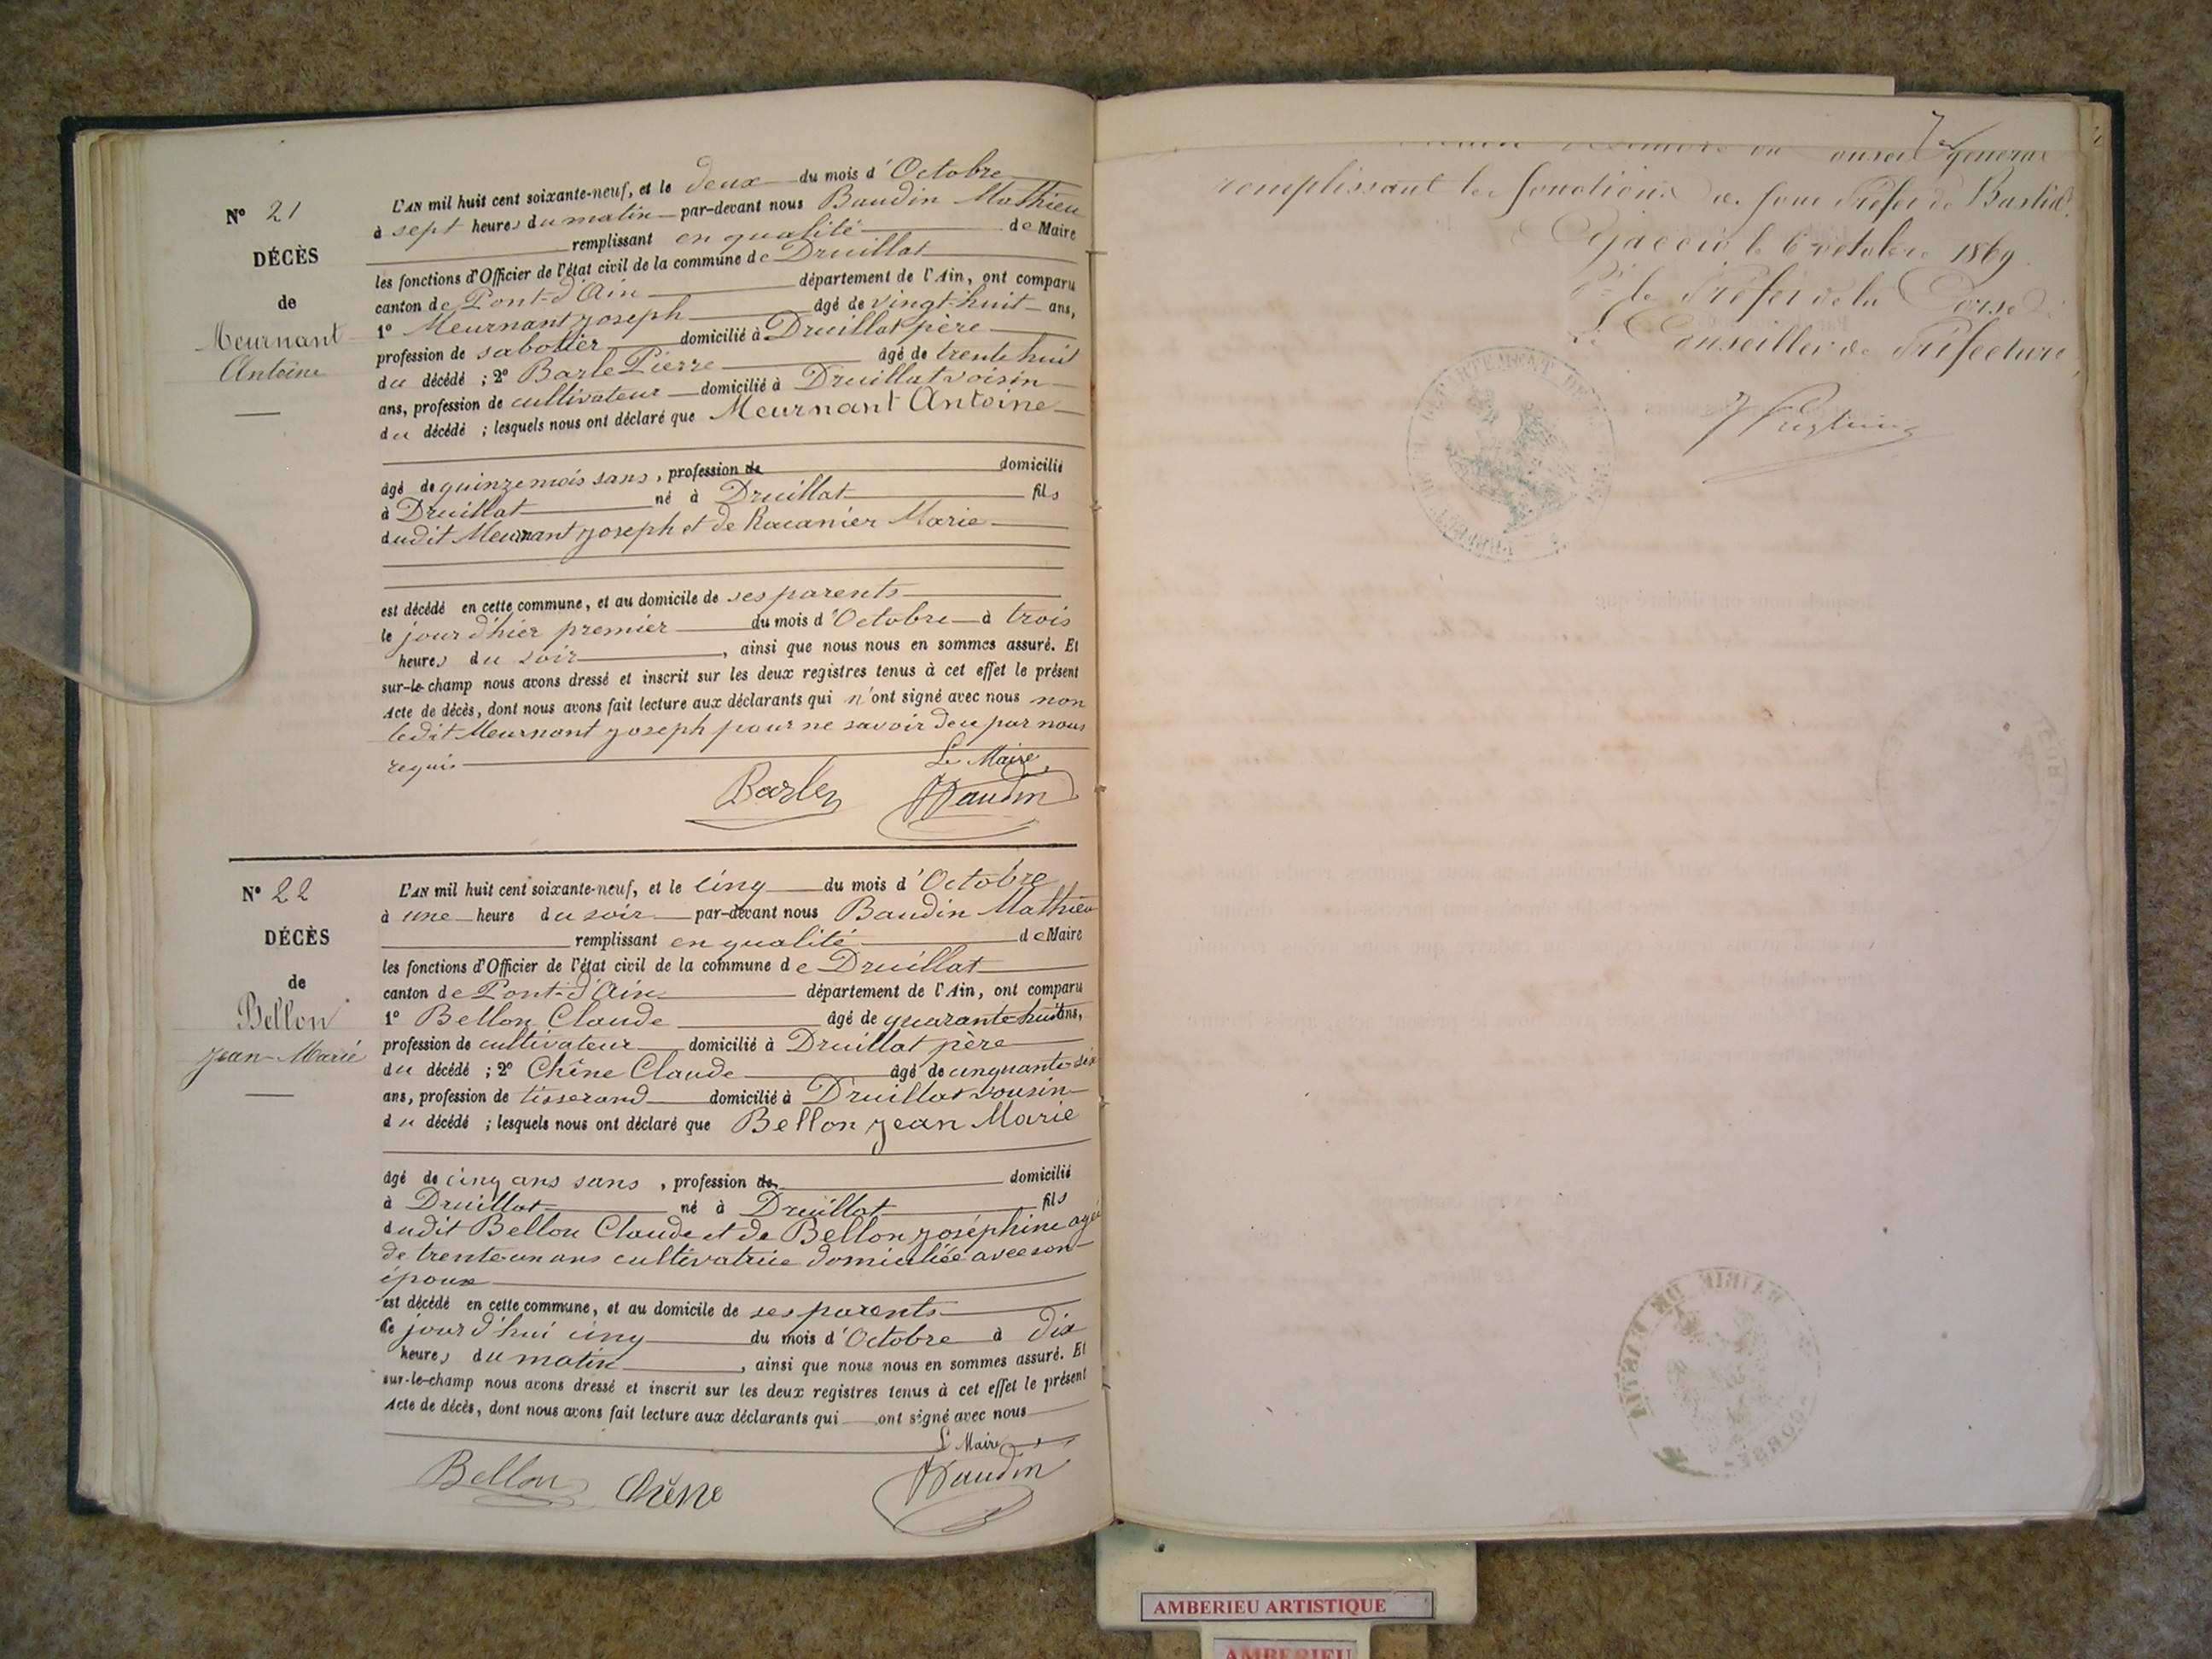 N° 21
DÉCÈS
de
Meurnant
Antoine
L'AN mil huit cent soixante-neuf, et le deux du mois d'Octobre
à sept heures du matin par-devant nous Baudin Mathieu
remplissant en qualité de Maire
les fonctions d'Officier de l'état civil de la commune de Druillat
canton de Pont-d'Ain département de l'Ain, ont comparu
1° Meurnant joseph âgé de vingt-huit ans,
profession de sabotier domicilié à Druillat père
du décédé ; 2° Barle Pierre âgé de trente huit
ans, profession de cultivateur domicilié à Druillat voisin
du décédé ; lesquels nous ont déclaré que Meurnant Antoine
âgé de quinze mois sans, profession de domicilié
à Druillat né à Druillat fils
dudit Meurnant joseph et de Marie
est décédé en cette commune, et au domicile de ses parents
le jour d'hier premier du mois d'Octobre à trois
heures du soir, ainsi que nous nous en sommes assuré. Et
sur-le-champ nous avons dressé et inscrit sur les deux registres tenus à cet effet le présent
Acte de décès, dont nous avons fait lecture aux déclarants qui n'ont signé avec nous non
ledit Meurnant joseph pour ne savoir de ce par nous
requis
Le Maire,
Barlez Baudin
N° 22
DÉCÈS
de
Bellon
jean-Marie
L'AN mil huit cent soixante-neuf, et le cinq du mois d'Octobre
à une heure du soir par-devant nous Baudin Mathieu
remplissant en qualité de Maire
les fonctions d'Officier de l'état civil de la commune de Druillat
canton de Pont-d'Ain département de l'Ain, ont comparu
1° Bellon Claude âgé de quarante huit ans,
profession de cultivateur domicilié à Druillat père
du décédé ; 2° Chêne Claude âgé de cinquante-six
ans, profession de tisserand domicilié à Druillat cousin
du décédé ; lesquels nous ont déclaré que Bellon jean Marie
âgé de cinq ans sans, profession de domicilié
à Druillat né à Druillat fils
dudit Bellon Claude et de Bellon joséphine agée
de trente un ans cultivatrice domiciliée avec son
époux
est décédé en cette commune, et au domicile de ses parents
le jour d'hui cinq du mois d'Octobre à dix
heures du matin, ainsi que nous nous en sommes assuré. Et
sur-le-champ nous avons dressé et inscrit sur les deux registres tenus à cet effet le présent
Acte de décès, dont nous avons fait lecture aux déclarants qui ont signé avec nous
L Maire
Bellon Chêne Baudin
général
remplissant les fonctions de Sous Préfet de Bastia.
Ajaccio le 6 octobre 1869
Pr le Préfet de la Corse
Le Conseiller de Préfecture,
MAIRIE DE
AMBERIEU ARTISTIQUE
AMBERIEU